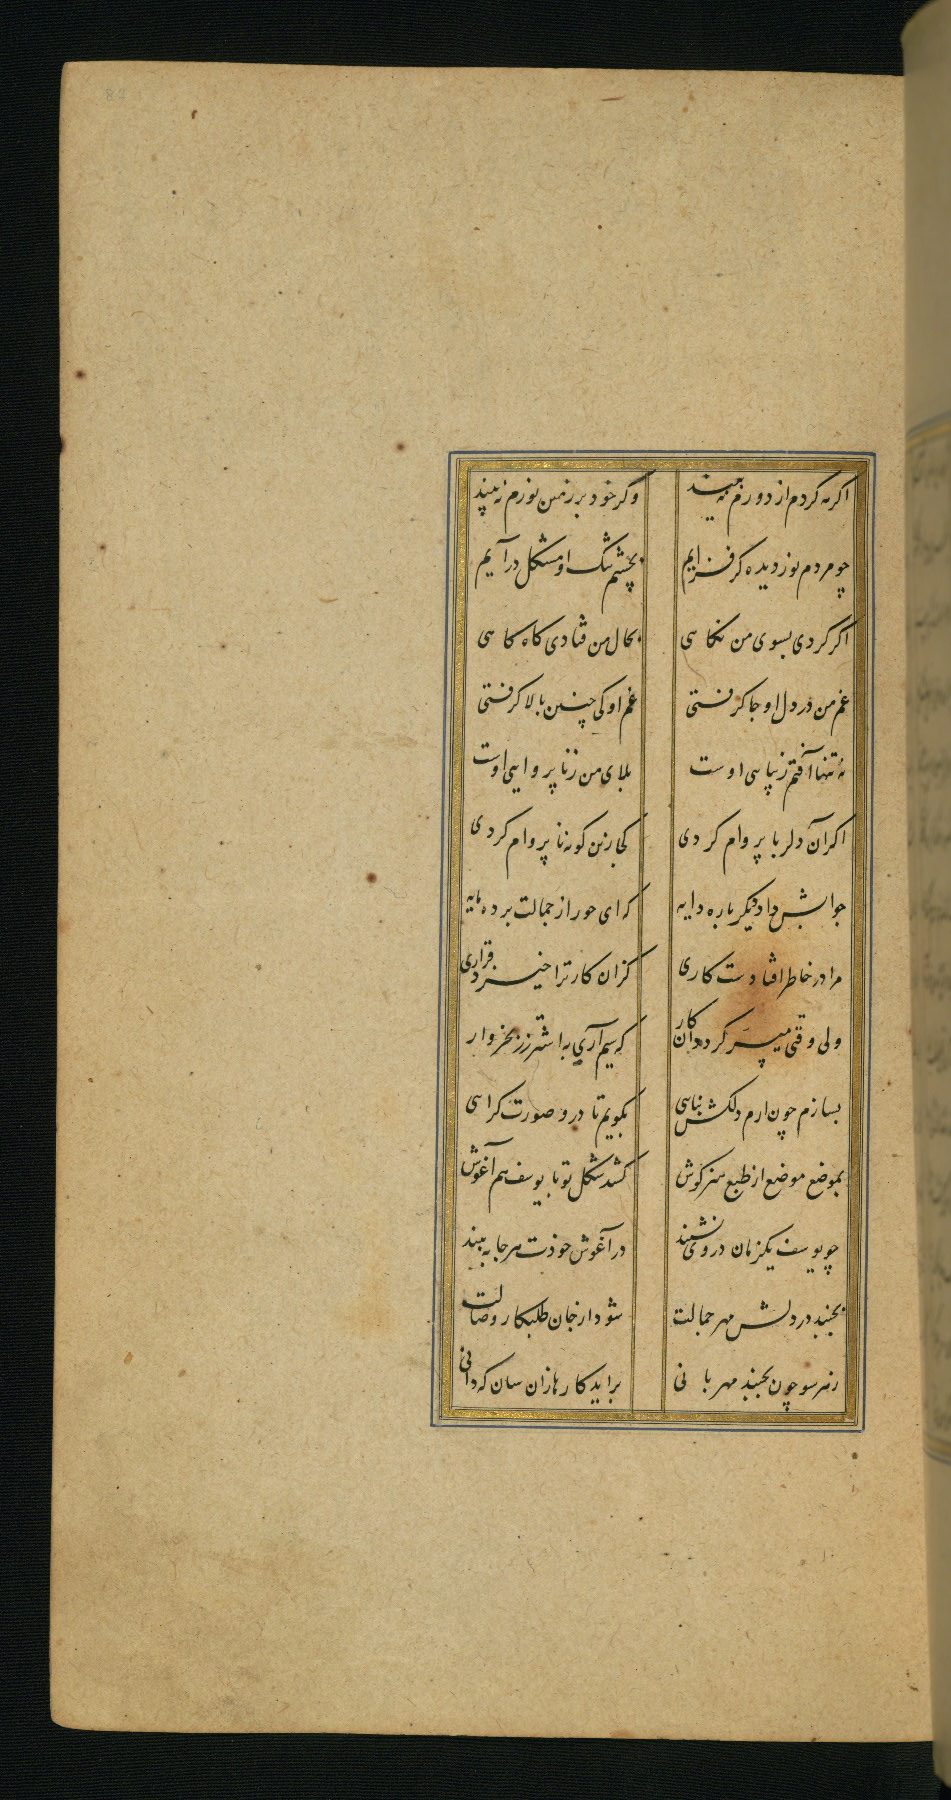 اگر مه گردم از دورم نه بیند وگر خود بر زمین نورم نه بیند
چو مردم نور دیده گر فزایم بچشم تنگ او مشکل درآیم
اگر کردی بسوی من نگاهی بحال من فتادی گاه گاهی
غم من در دل او جا گرفتی غم او کی چنین بالا گرفتی
نه تنها آفتم زیبایی اوست بلای من ز ناپروایی اوست
اگر آن دلربا پروام کردی کجا زین گونه ناپروام کردی
جوابش داد دیگر باره دایه که ای حور از جمالت برده مایه
مرا در خاطر افتادست کاری کزان کار ترا خیزد قراری
ولی وقتی میسر گردد آن کار که سیم آری به اشتر زر بخروار
بسازم چون ارم دلکش بنایی بگویم تا درو صورت گرایی
بموضع موضع از طبع هنر کوش کشد شکل تو با یوسف هم آغوش
چو یوسف یکزمان در وی نشیند در آغوش خودت هر جا به بیند
بجنبد در دلش مهر جمالت شود از جان طلبکار وصالت
ز هر سو چون بجنبد مهربانی برآید کارها زان سان که دانی